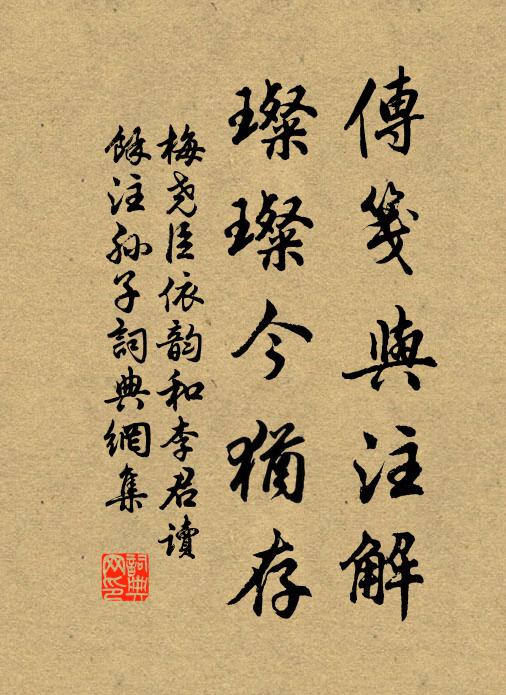 傳箋與注解
璨璨今猶存
梅尧臣依韵和李君讀
餘注孙子詞典網集
詞典
网印